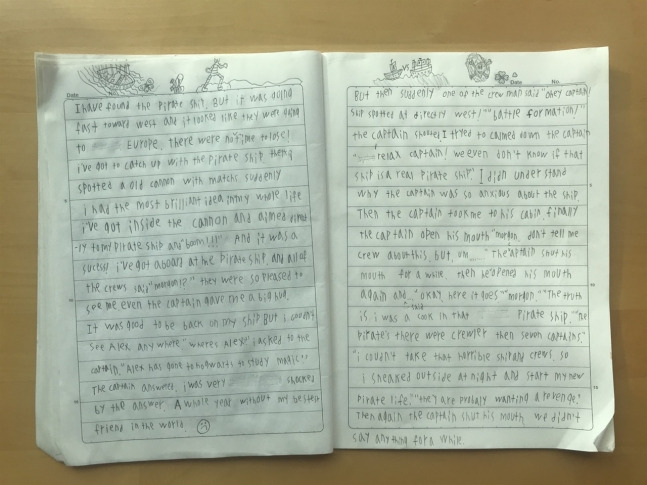 Date
I have found the Pirate ship. But it was going
fast toward west and it looked like they were going
to Europe. there were no time to lose!
i've got to catch up with the pirate ship then i
spotted a old cannon with match. suddenly
i had the most brilliant idea in my whole life
i've got inside the cannon and aimed direct
-ly to my pirate ship and "boom!!!" And it was a
sucess! i've got aboard at the Pirate ship and all of
the crews said "morgon?" they were so pleased to
see me even the captain gave me a big hug.
It was good to be back on my ship But i couldn't
see Alex any where "where's Alex?" i asked to the
captain. "Alex has gone to hogwarts to study magic!"
The captain answers. i was very shocked
by the answer. A whole year without my bestest
friend in the world.
vs
Date No.
But then suddenly one of the crew man said "ohey captain!
ship spotted at directly west!" "battle formation!"
the captain shouted I tryed to calmed down the captain
"relax captain! we even don't know if that
ship is a real Pirate ship." I didn't understand
why the captain was so anxious about the ship.
Then the captain took me to his cabin. finany
the captain open his mouth "morgon, don't tell me
crew about this. but um...." The captain shut his
mouth for a while. then he opened his mouth
again and said "okay, here it goes" "morgon," "The truth
is, i was a cook in that Pirate ship." "The
Pirate's there were crewler then seven captains."
"i couldn't take that horrible ship and crews, so
i sneaked outside at night and start my new
pirate life." "they are probaly wanting a revenge."
Then again the captain shut his mouth we didn't
say anything for a while.